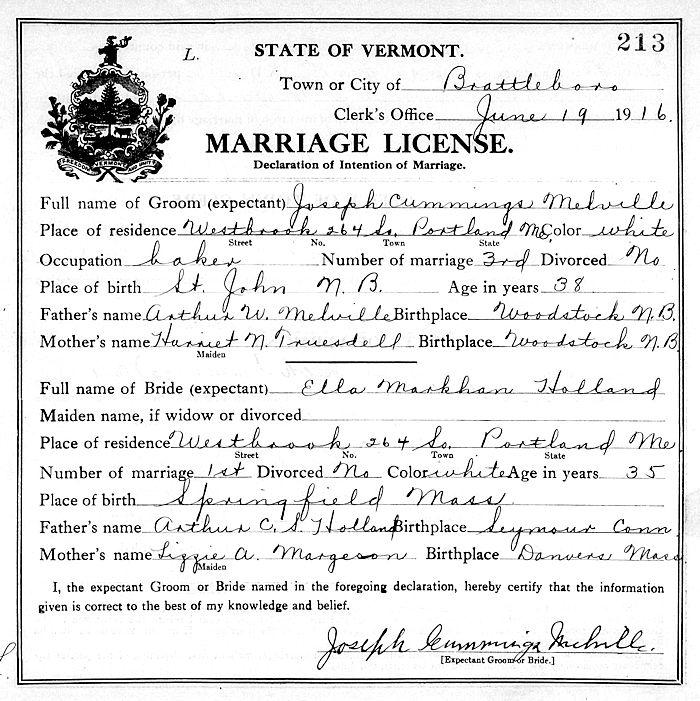 213
L.
STATE OF VERMONT.
Town or City of Brattleboro
Clerk's Office June 19 1916.
MARRIAGE LICENSE.
Declaration of Intention of Marriage.
FREEDOM VERMONT AND UNITY
Full name of Groom (expectant) Joseph Cummings Melville
Place of residence Westbrook 264 So. Portland Me. Color white
Street No. Town State
Occupation baker Number of marriage 3rd Divorced No
Place of birth St. John N.B. Age in years 38
Father's name Arthur W. Melville Birthplace Woodstock N.B.
Mother's name Harriet N. Truesdell Birthplace Woodstock N.B
Maiden
Full name of Bride (expectant) Ella Markhan Holland
Maiden name, if widow or divorced
Place of residence Westbrook 264 So. Portland Me
Street No. Town State
Number of marriage 1st Divorced No Color white Age in years 35
Place of birth Springfield Mass
Father's name Arthur C. S. Holland Birthplace Seymour Conn
Mother's name Lizzie A. Margeson Birthplace Danvers Mass
Maiden
I, the expectant Groom or Bride named in the foregoing declaration, hereby certify that the information
given is correct to the best of my knowledge and belief.
Joseph Cummings Melville.
[Expectant Groom or Bride.]